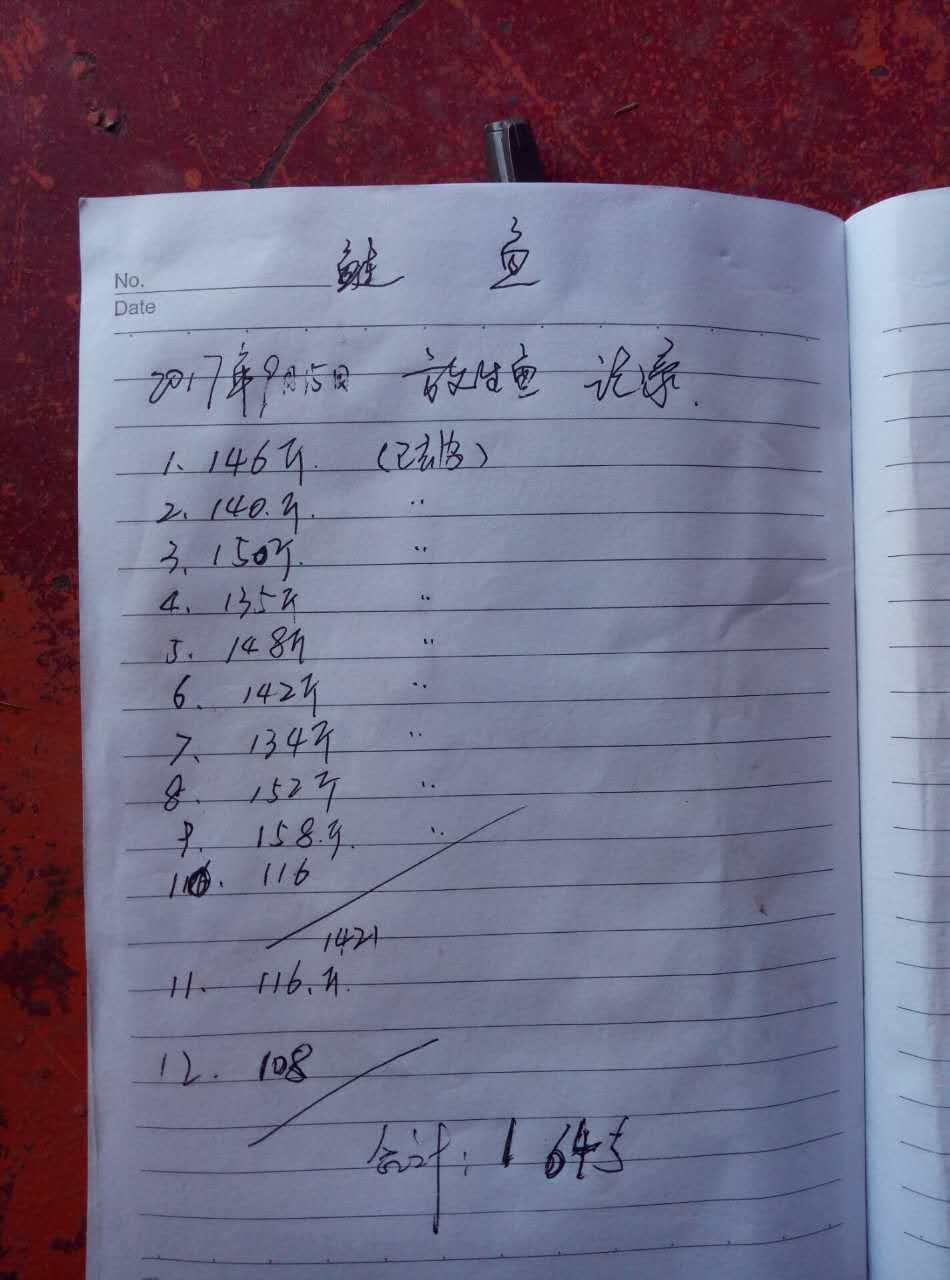 No.
鲢 鱼
Date
2017年9月15日 放生鱼 记录.
1. 146斤. (已去皮)
2. 140.斤. 〃
3. 150斤. 〃
4. 135斤 〃
5. 148斤 〃
6. 142斤 〃
7. 134斤 〃
8. 152斤 〃
9. 158.斤. 〃
10. 116
1421
11. 116.斤.
12. 108
合计: 1645